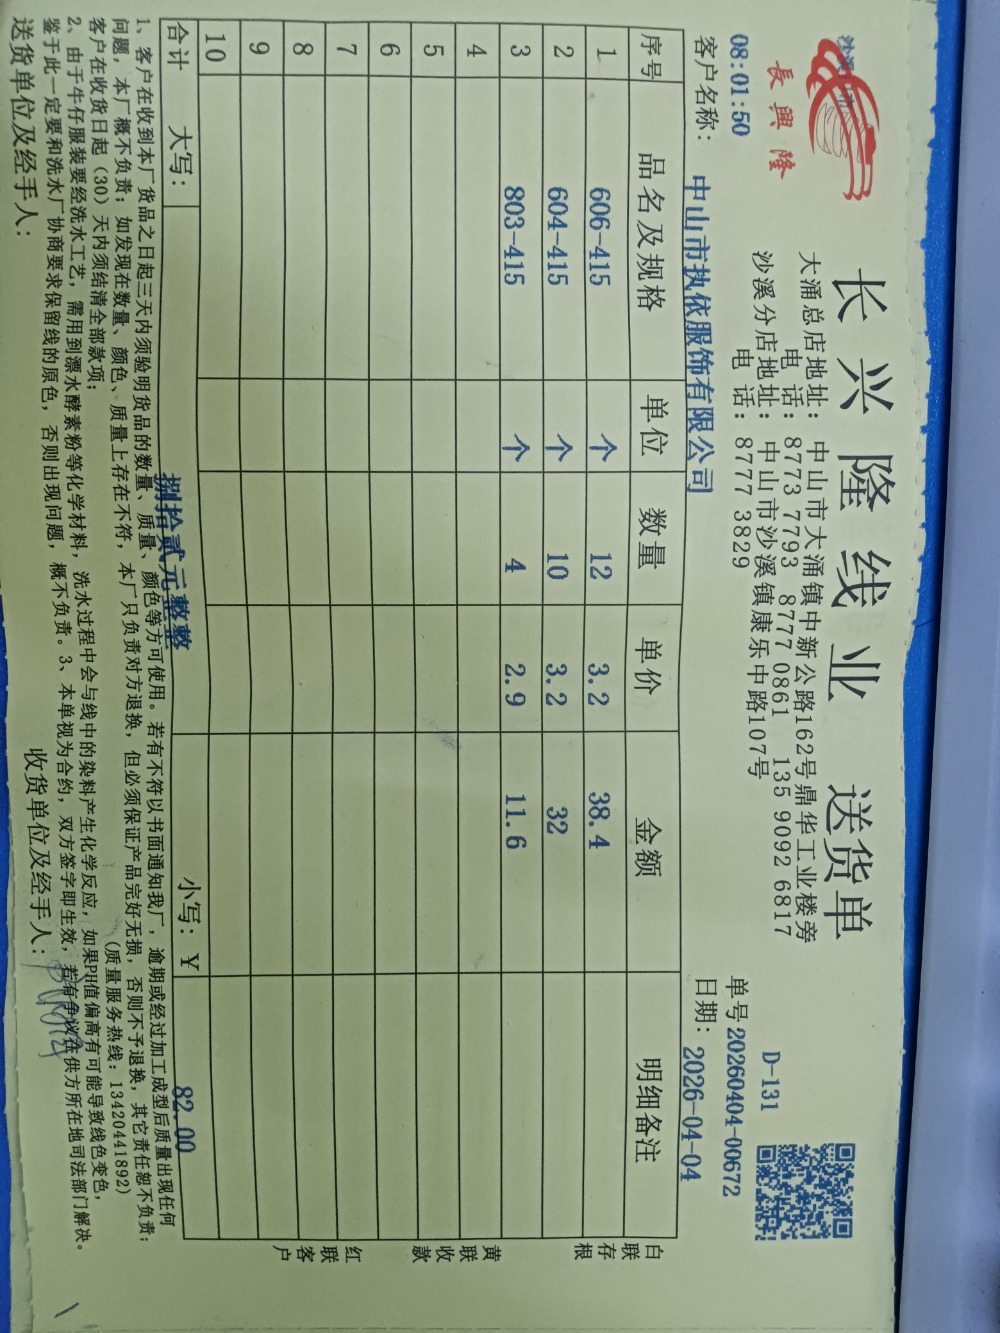 長興隆
长兴隆线业 送货单
大涌总店地址：中山市大涌镇中新公路162号鼎华工业楼旁
电 话：8773 7793 8777 0861 135 9092 6817
沙溪分店地址：中山市沙溪镇康乐中路107号
电 话：8777 3829
D-131
08:01:50
单号 20260404-00672
客户名称：中山市执依服饰有限公司
日期：2026-04-04
序号 品名及规格 单位 数量 单价 金额 明细备注
1 606-415 个 12 3.2 38.4
2 604-415 个 10 3.2 32
3 803-415 个 4 2.9 11.6
4
5
6
7
8
9
10
合计 大写：捌拾贰元整整 小写：￥ 82.00
白联存根
黄联收款
红联客户
1、客户在收到本厂货品之日起三天内须验明货品的数量、质量、颜色等方可使用。若有不符以书面通知我厂，逾期或经过加工成型后质量出现任何
问题，本厂概不负责；如发现在数量、颜色、质量上存在不符，本厂只负责对方退换，但必须保证产品完好无损，否则不予退换，其它责任恕不负责；
客户在收货日起（30）天内须结清全部款项；
(质量服务热线：13420441892)
2、由于牛仔服装要经洗水工艺，需用到漂水酵素粉等化学材料，洗水过程中会与线中的染料产生化学反应，如果PH值偏高有可能导致线色变色，
鉴于此一定要和洗水厂协商要求保留线的原色，否则出现问题，概不负责。3、本单视为合约，双方签字即生效，若有争议在供方所在地司法部门解决。
送货单位及经手人：
收货单位及经手人：